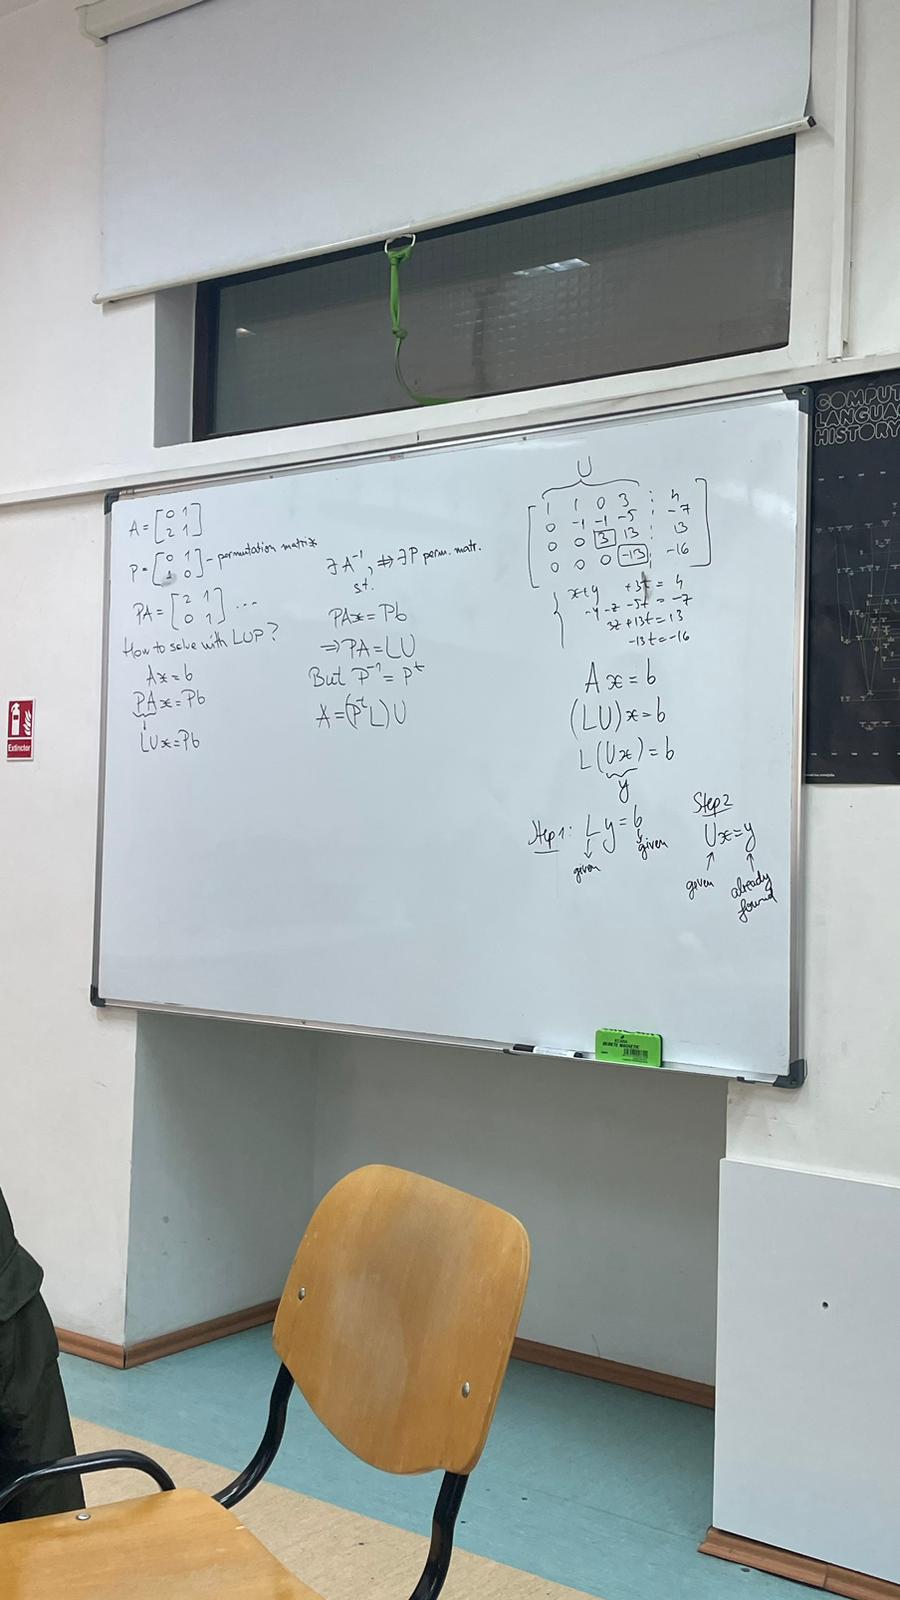 A = [0 1
2 1]
P = [0 1
1 0] - permutation matrix
PA = [2 1
0 1] ...
How to solve with LUP?
Ax = b
PAx = Pb
↓
LUx = Pb
∃ A⁻¹, ⇒ ∃ P perm. matr.
st.
PAx = Pb
⇒ PA = LU
But P⁻¹ = Pᵗ
A = (PᵗL)U
U
1 1 0 3 ⋮ 4
0 -1 -1 -5 ⋮ -7
0 0 3 13 ⋮ 13
0 0 0 -13 ⋮ -16
x+y +3t = 4
-y-z-5t = -7
3z+13t = 13
-13t = -16
Ax = b
(LU)x = b
L(Ux) = b
y
Step 1: Ly = b
given
given
Step 2
Ux = y
given
already
found
COMPUT
LANGUA
HISTORY
Extinctor